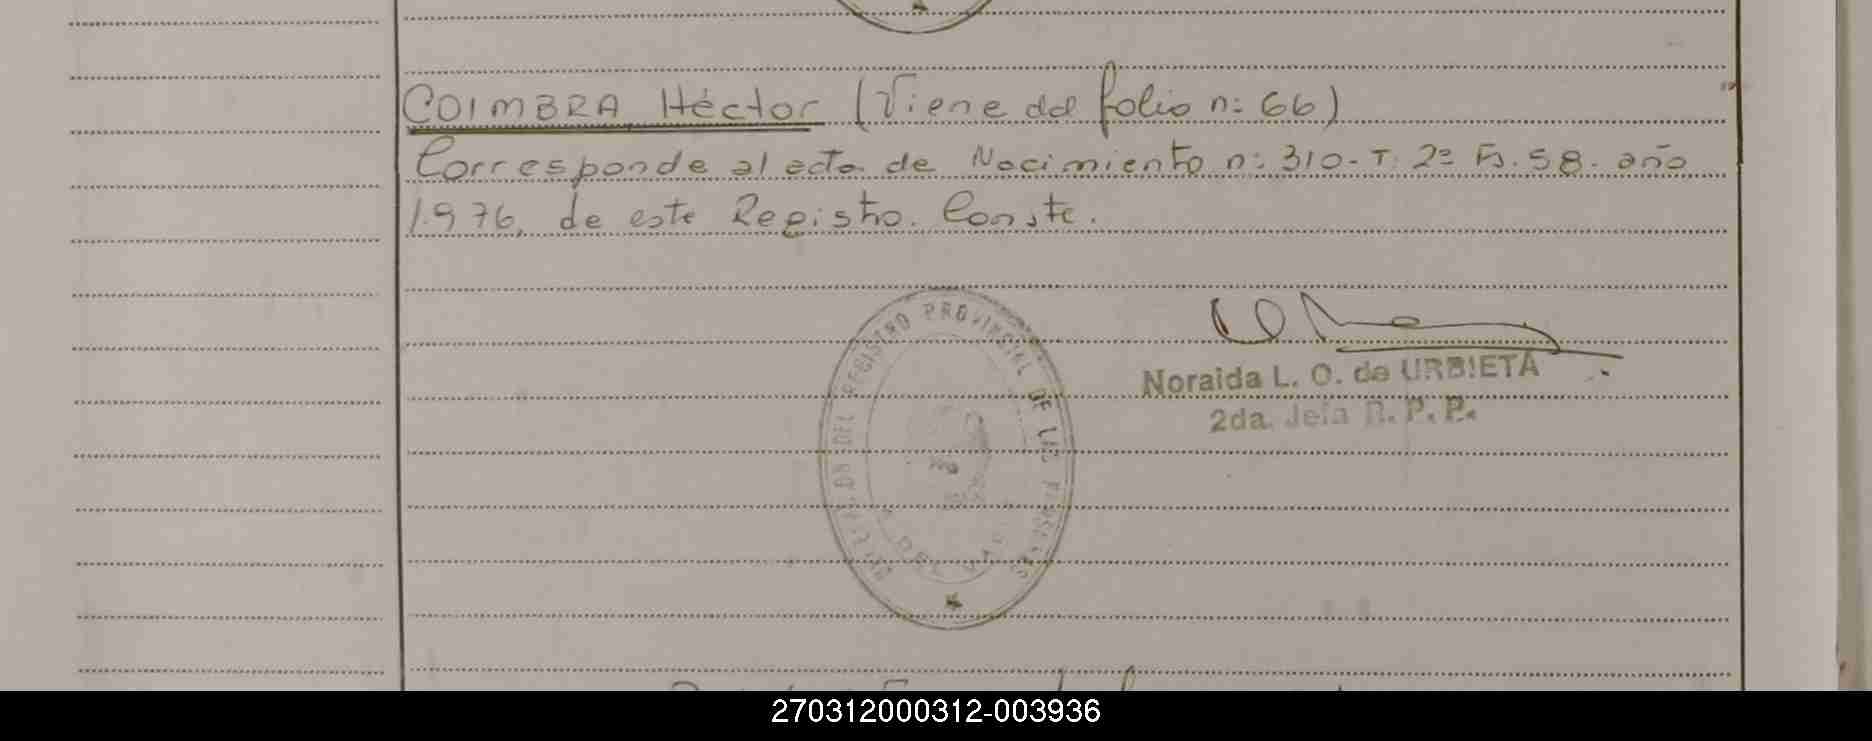 COIMBRA, Héctor (Viene del folio n: 66)
Corresponde al acta de Nacimiento n: 310- T: 2º Fs. 58. año
1.976, de este Registro. Conste.
DEL REGISTRO PROVINCIAL DE LAS PERSONAS
Noraida L. O. de URBIETA
2da. Jefa R. P. P.
270312000312-003936